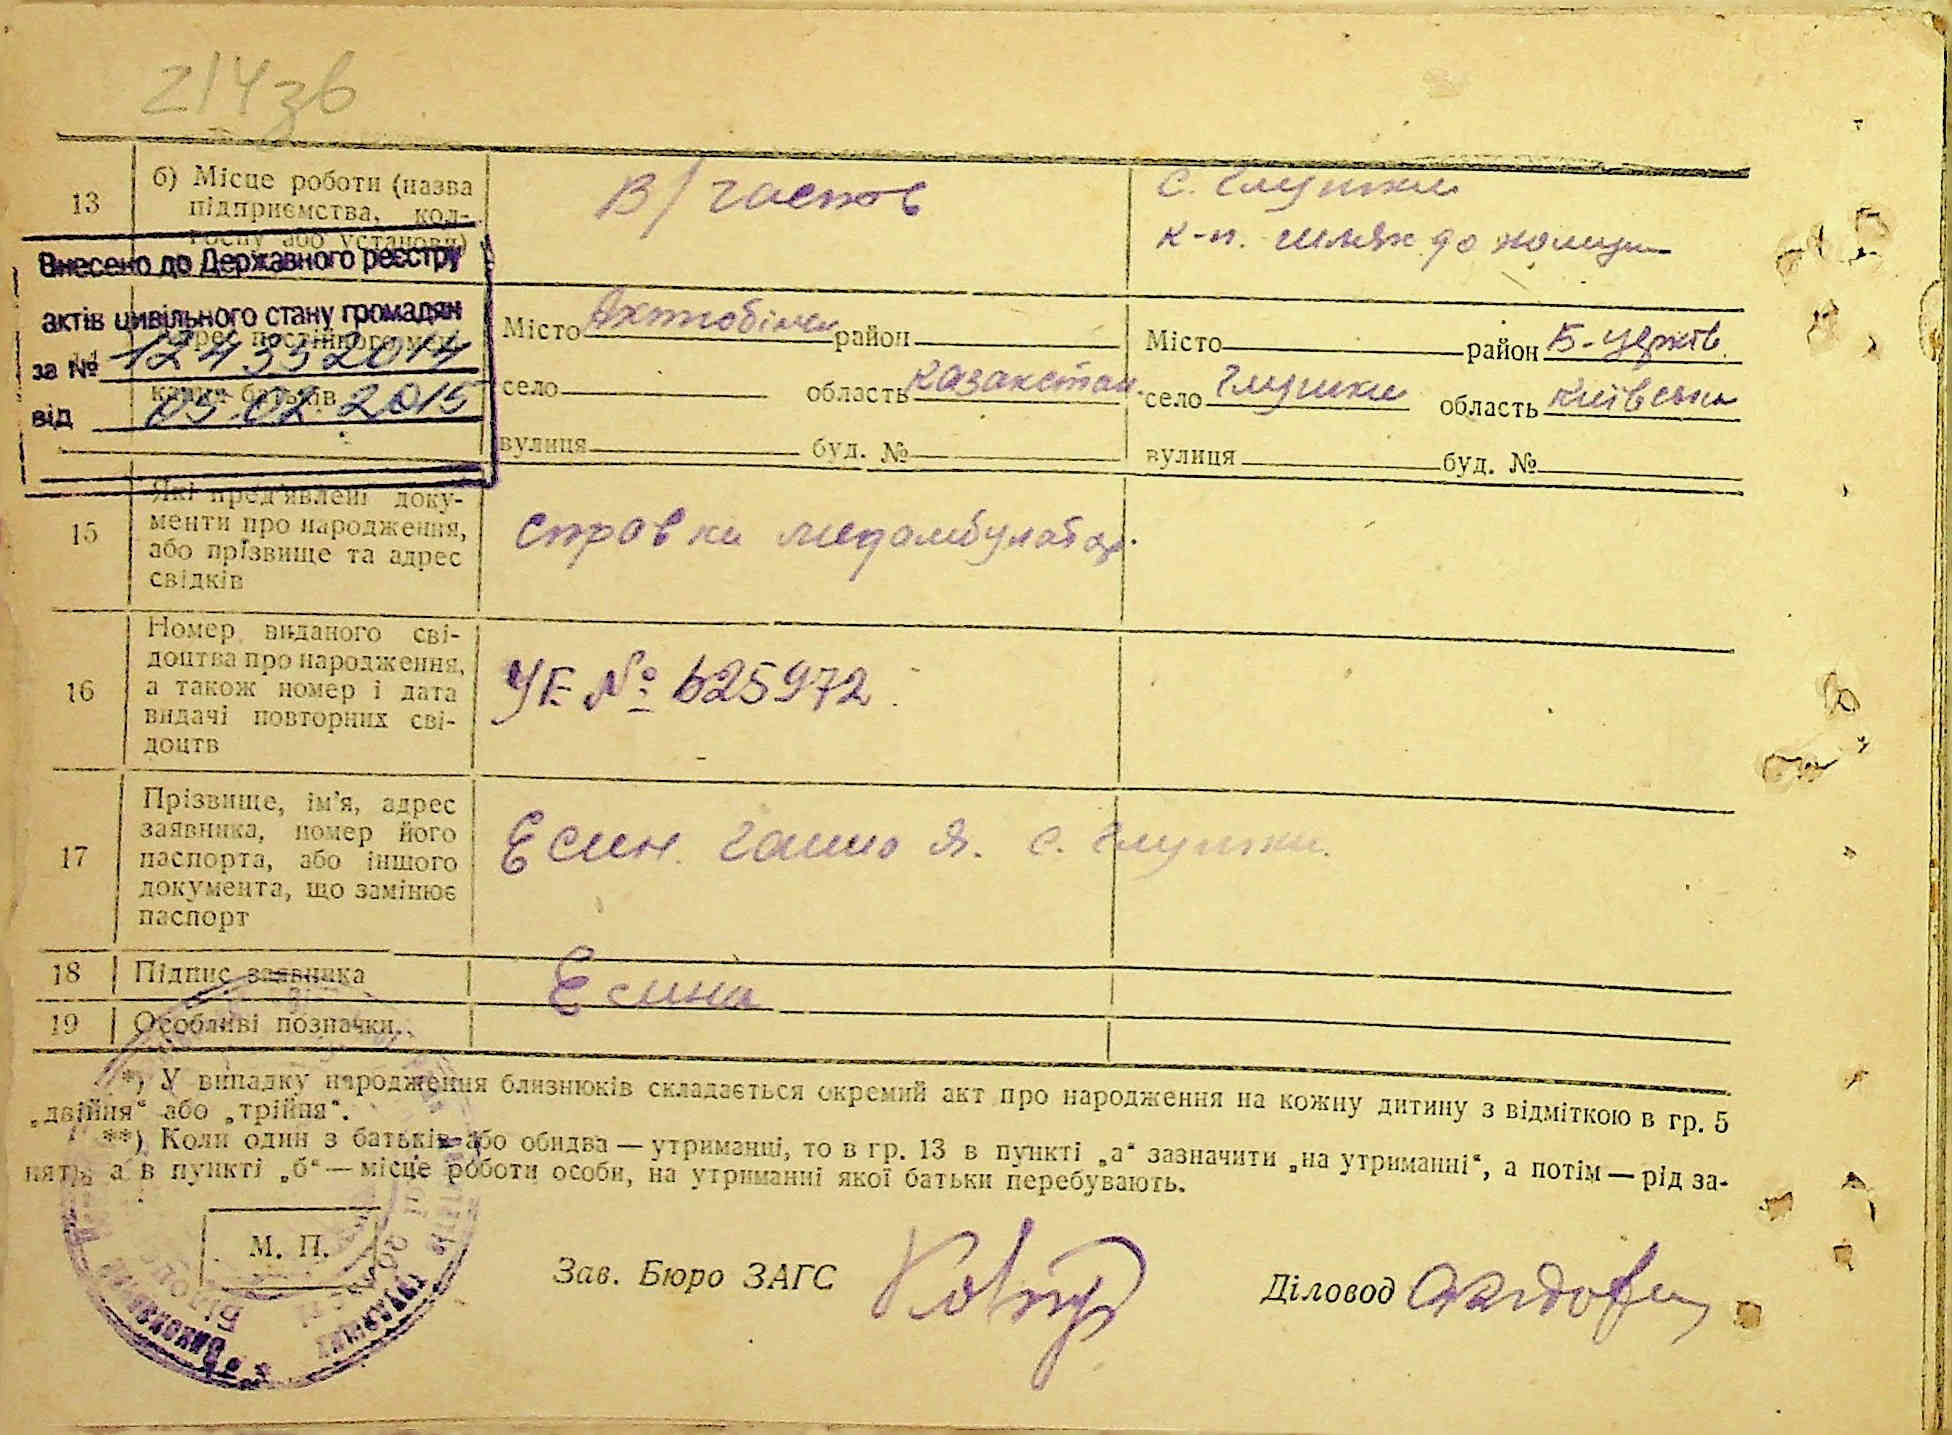 214зв
13
б) Місце роботи (назва
підприємства, кол-
госпу або установи)
В/частов
с. Глушки
к-п. шлях до комуни
Внесено до Державного реєстру
актів цивільного стану громадян
за № 124332014
від 05.02.2015
Місто Актюбінск район
село область Казакстан
вулиця буд. №
Місто район Б-Церків.
село Глушки область Київська
вулиця буд. №
15
Які пред'явлені доку-
менти про народження,
або прізвище та адрес
свідків
справка медамбулатор.
16
Номер виданого сві-
доцтва про народження,
а також номер і дата
видачі повторних сві-
доцтв
УЕ № 625972
17
Прізвище, ім'я, адрес
заявника, номер його
паспорта, або іншого
документа, що замінює
паспорт
Есин. Я. с. Глушки.
18
Підпис заявника
Есина
19
Особливі позначки..
*) У випадку народження близнюків складається окремий акт про народження на кожну дитину з відміткою в гр. 5
„двійня“ або „трійня“.
**) Коли один з батьків або обидва — утриманці, то в гр. 13 в пункті „а“ зазначити „на утриманні“, а потім — рід за-
нять, а в пункті „б“ — місце роботи особи, на утриманні якої батьки перебувають.
М. П.
Зав. Бюро ЗАГС
Діловод